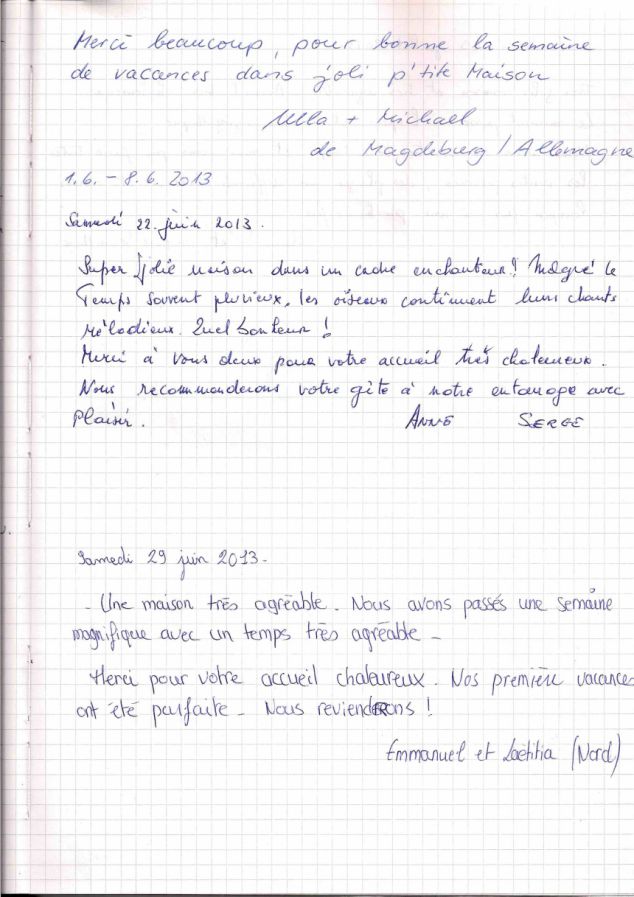 Merci beaucoup, pour bonne la semaine
de vacances dans joli p'tite Maison
Ulla + Michael
de Magdeburg / Allemagne
1.6. – 8.6. 2013
Samedi 22 juin 2013.
Super jolie maison dans un cadre enchanteur! Malgré le
Temps souvent pluvieux, les oiseaux continuent leurs chants
mélodieux. Quel bonheur !
Merci à vous deux pour votre accueil très chaleureux.
Nous recommanderons votre gîte à notre entourage avec
Plaisir. ANNE SERGE
Samedi 29 juin 2013-
- Une maison très agréable. Nous avons passés une semaine
magnifique avec un temps très agréable -
Merci pour votre accueil chaleureux. Nos première vacances
ont été parfaite - Nous reviendrons !
Emmanuel et Laëtitia (Nord)